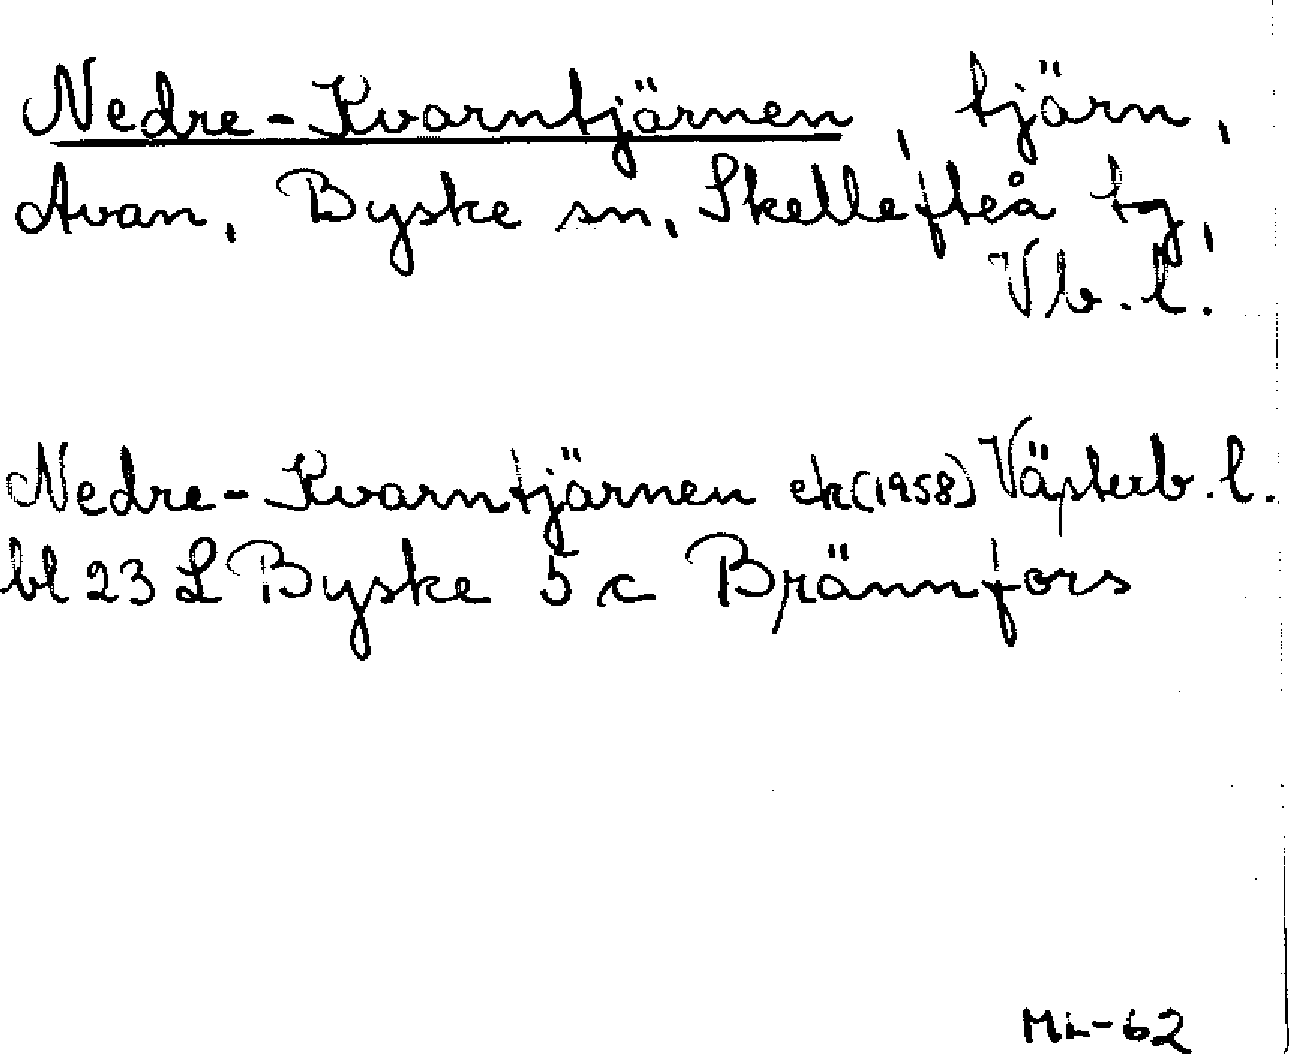 Nedre-Kvarntjärnen, tjärn,
Avan, Byske sn, Skellefteå tg,
Vb. l.
Nedre-Kvarntjärnen ek (1958) Västerb. l.
bl 23 L Byske 5 c Brännfors
ML-62